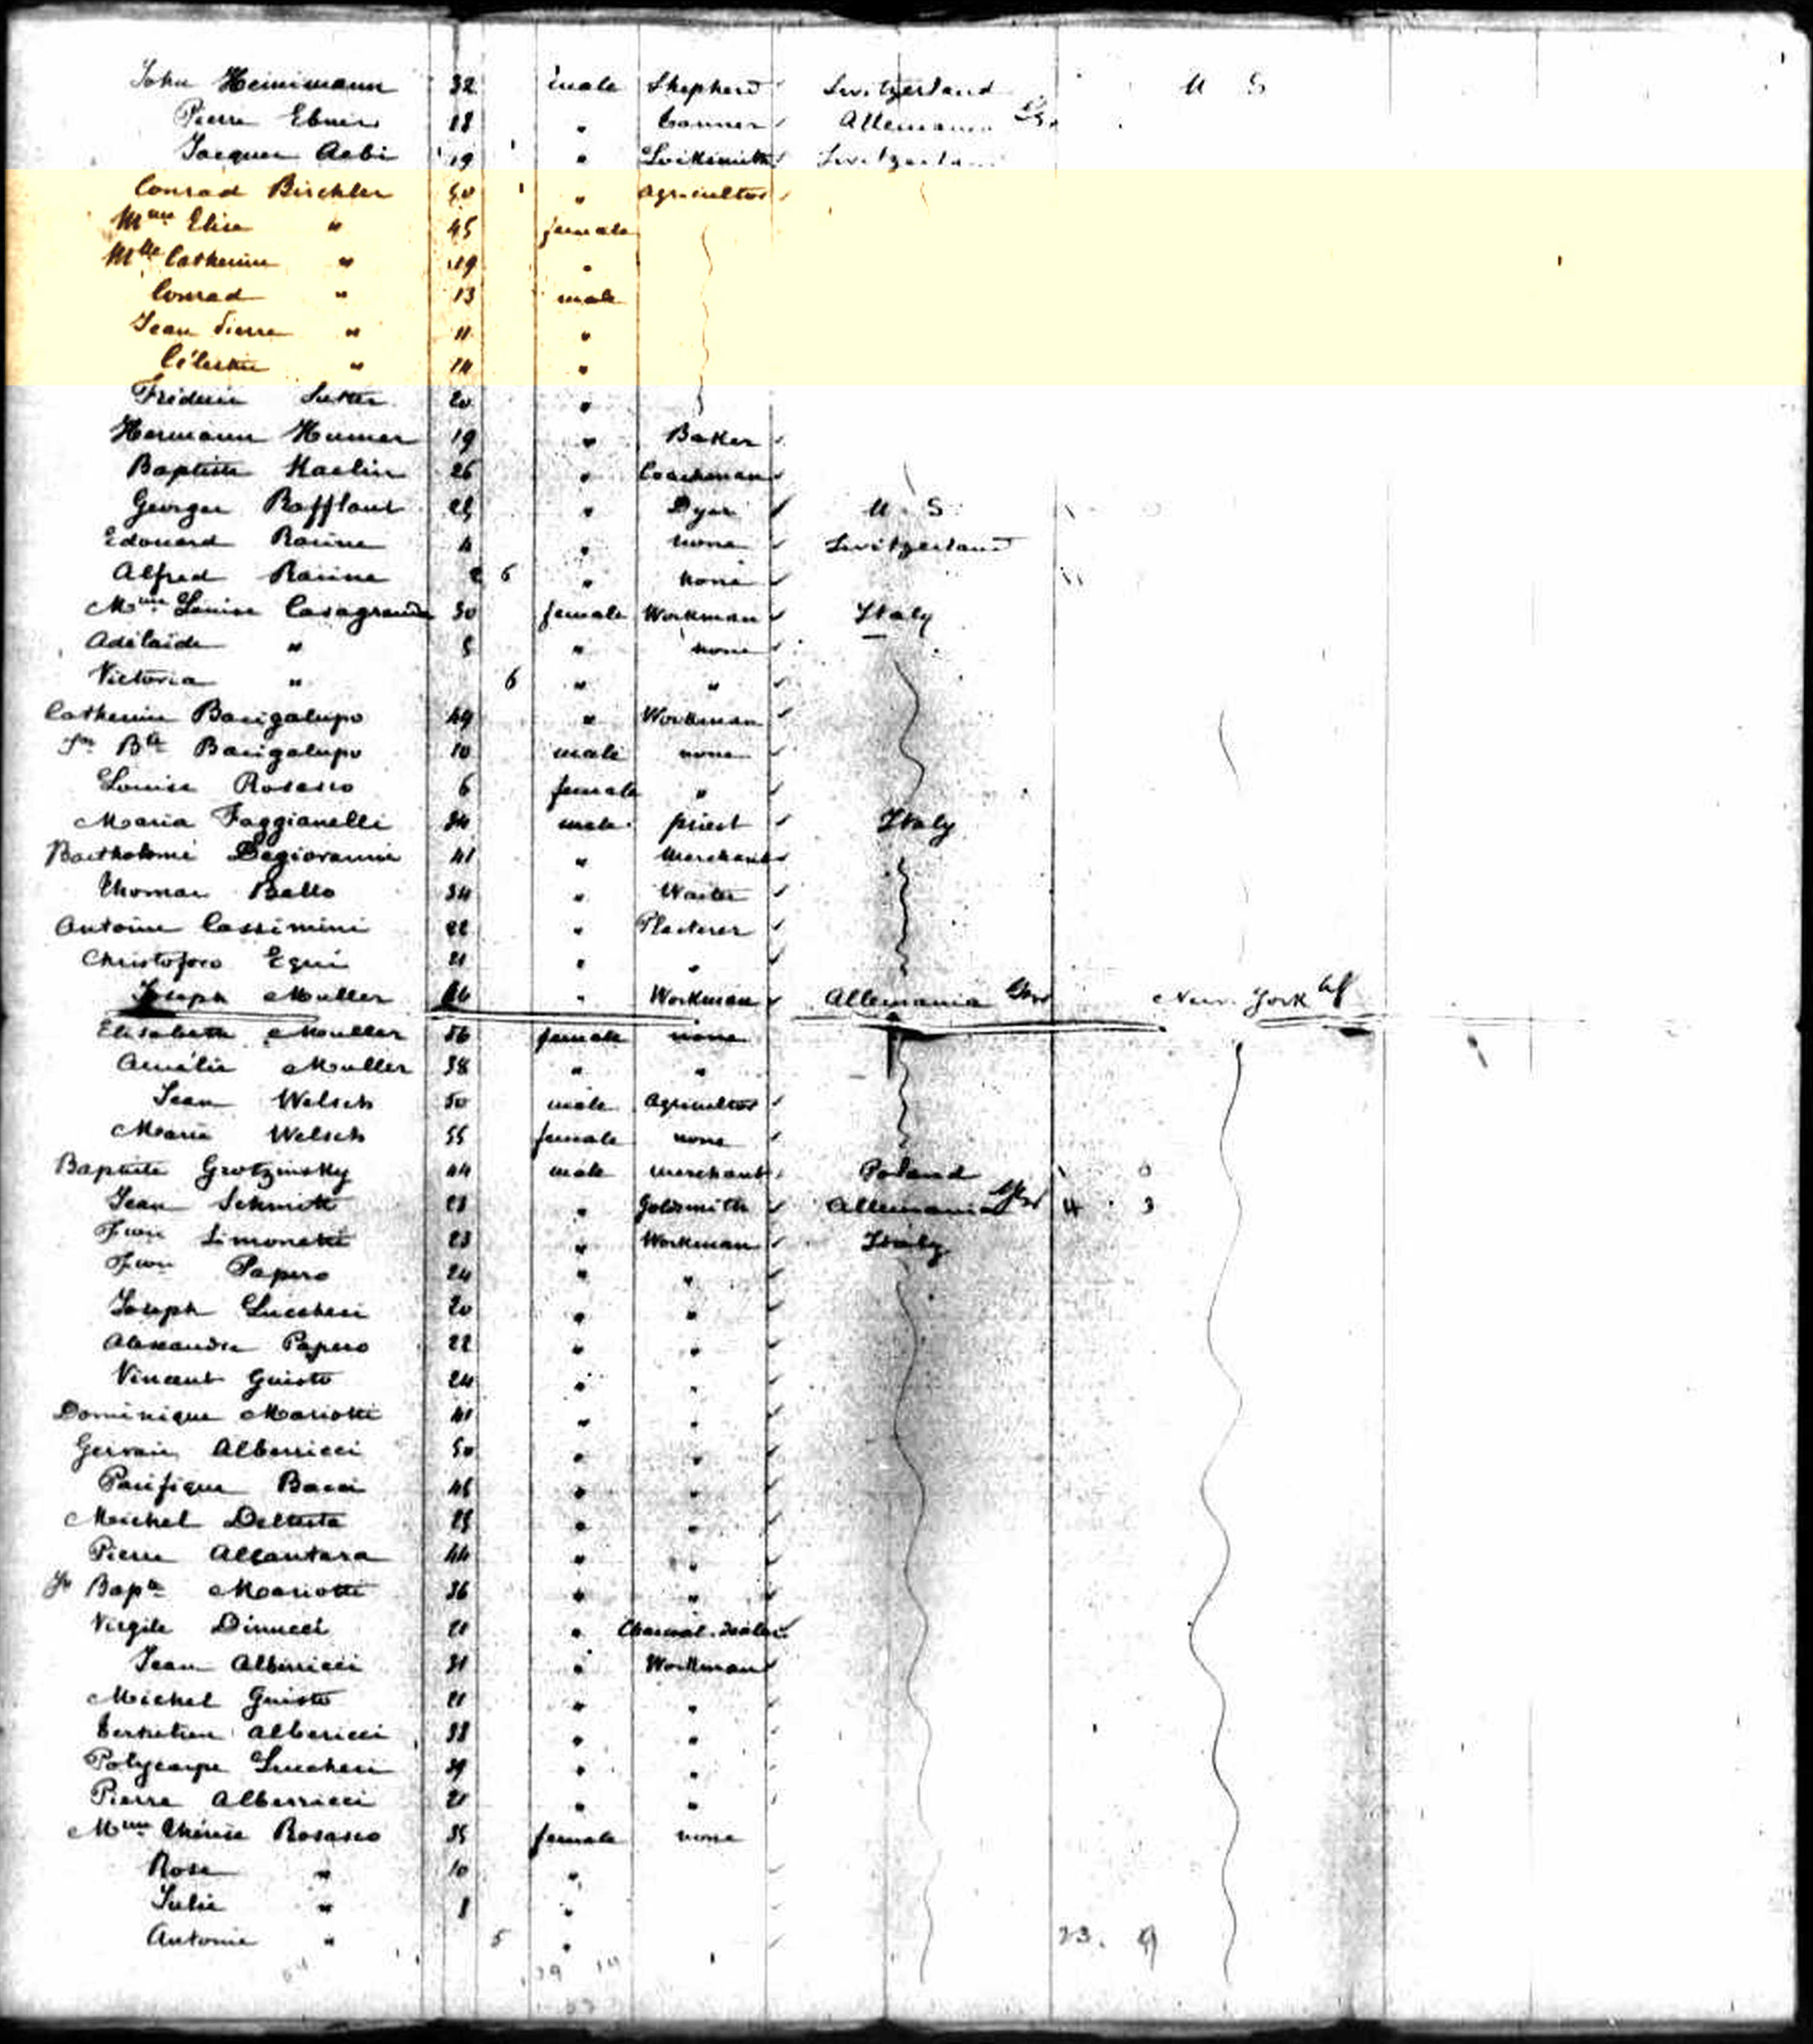 John Heinimann 32 male Shepherd Switzerland U S
Pierre Ebner 18 " Tanner Allemania Ger
Jacques Aebi 19 " Locksmith Switzerland
Conrad Birchler 50 " Agricultor
Mme Elise " 45 female
Mlle Catherine " 19 "
Conrad " 13 male
Jean Pierre " 11 "
Célestin " "
Fréderic Sutter 20 "
Hermann Humer 19 " Baker
Baptiste Kaelin 26 " Coachman
Georges Rafflaut " Dyer U S
Edouard Racine 4 " none Switzerland
Alfred Racine 6 " none
Mme Louise Casagrande 30 female Workman Italy
Adélaïde " 5 " none
Victoria " 6 " "
Catherine Bacigalupo 49 " Workman
Jn Bte Bacigalupo 10 male none
Louise Rosasco 6 female "
Maria Faggianelli 34 male priest Italy
Bartholomé Degiovanni 41 " Merchant
Thomas Ballo 34 " Waiter
Antoine Cassimini 22 " Plasterer
Christoforo Equi 21 " "
Joseph Muller 66 " Workman Allemania Ger New York
Elisabeth Mouller 56 female none
Amélie Muller 38 " "
Jean Welsch 50 male Agricultor
Marie Welsch 55 female none
Baptiste Grotzinsky 44 male merchant Poland
Jean Schmitt 23 " Goldsmith Allemania Ger 4 3
Simonetti 23 " Workman Italy
Papero 24 " "
Joseph Luccheri 20 " "
Alexandre Papero 22 " "
Vincent Guisto 24 " "
Dominique Mariotti 41 " "
Gervais Alberricci 50 " "
Pacifique Bacci 45 " "
Michel Deltesta 25 " "
Pierre Alcantara 44 " "
Jn Bapte Mariotti 36 " "
Virgile Dinucci 21 " Charcoal-dealer
Jean Alberricci 31 " Workman
Michel Guisto 21 " "
Albericci 38 " "
Polycarpe Luccheri 39 " "
Pierre Alberricci 21 " "
Mme Thérèse Rosasco 35 female none
Rose " 10 "
Julie " 8 "
Antonie " 5 " 23. 9